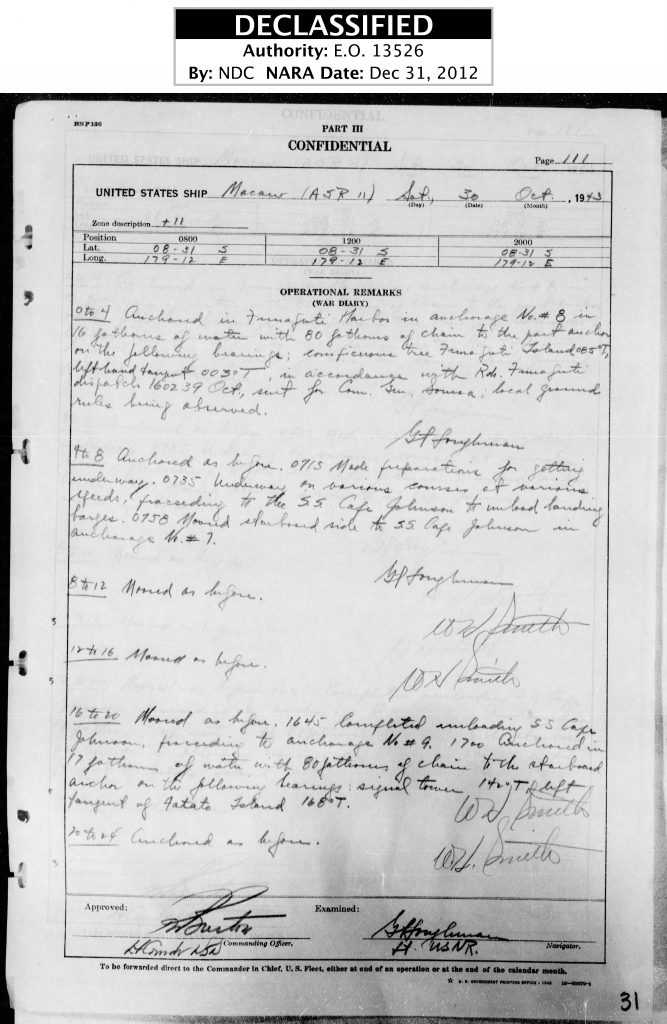 DECLASSIFIED
Authority: E.O. 13526
By: NDC NARA Date: Dec 31, 2012
BNP 136
PART III
CONFIDENTIAL
Page 111
UNITED STATES SHIP Macaw (ASR 11) Sat, 30 Oct. , 1943
(Day) (Date) (Month)
Zone description +11
Position 0800 1200 2000
Lat. 08-31 S 08-31 S 08-31 S
Long. 179-12 E 179-12 E 179-12 E
OPERATIONAL REMARKS
(WAR DIARY)
0 to 4 Anchored in Funafuti Harbor in anchorage No. #8 in
16 fathoms of water with 80 fathoms of chain to the port anchor
on the following bearings; Funafuti Island 085°T,
left hand tangent 003°T, in accordance with Rdo. Funafuti
dispatch 160239 Oct, sent for Com. Gen. Samoa; local ground
rules being observed.
4 to 8 Anchored as before. 0715 Made preparations for getting
underway. 0735 Underway on various courses at various
speeds, proceeding to the S.S. Cape Johnson to unload landing
barges. 0758 Moored starboard side to S.S. Cape Johnson in
anchorage No. #7.
8 to 12 Moored as before.
W H Smith
12 to 16 Moored as before.
W H Smith
16 to 20 Moored as before. 1645 Completed unloading S S Cape
Johnson, proceeding to anchorage No #9. 1700 Anchored in
17 fathoms of water with 80 fathoms of chain to the starboard
anchor on the following bearings: signal tower 142°T, left
tangent of Fatato Island 168°T.
W H Smith
20 to 24 Anchored as before.
W.H. Smith
Approved: Examined:
Commanding Officer. Lt. USNR. Navigator.
To be forwarded direct to the Commander in Chief, U. S. Fleet, either at end of an operation or at the end of the calendar month.
U. S. GOVERNMENT PRINTING OFFICE
31